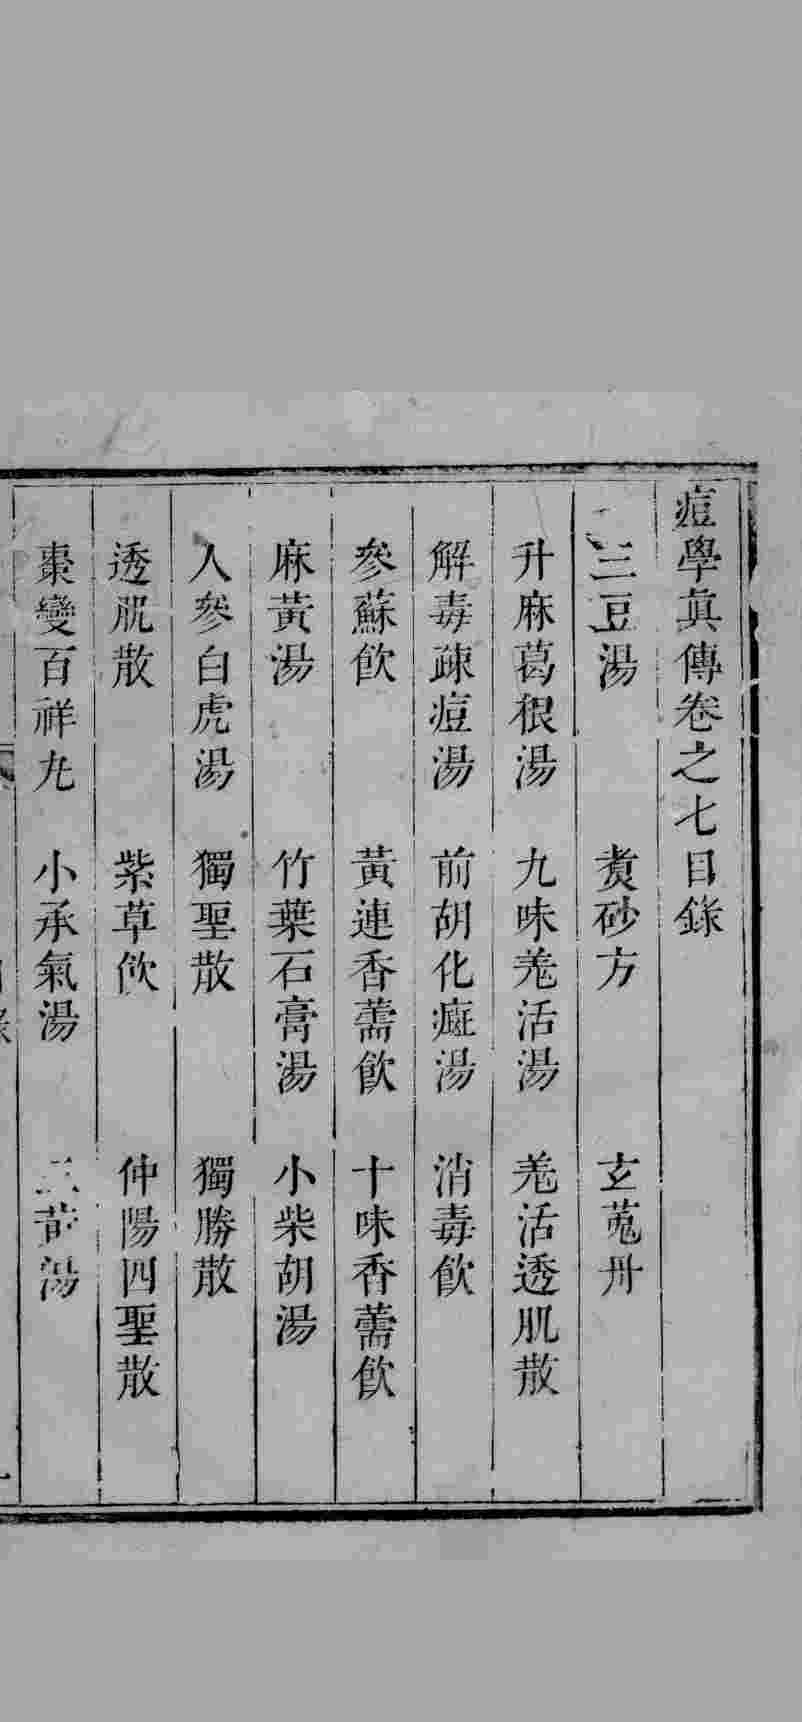 痘學眞傳卷之七目錄
三豆湯　煑砂方　玄菟丹
升麻葛根湯　九味羗活湯　羗活透肌散
解毒疎痘湯　前胡化癍湯　消毒飮
參蘇飮　黃連香薷飮　十味香薷飮
麻黃湯　竹葉石膏湯　小柴胡湯
人參白虎湯　獨聖散　獨勝散
透肌散　紫草飮　仲陽四聖散
棗變百祥丸　小承氣湯　湯